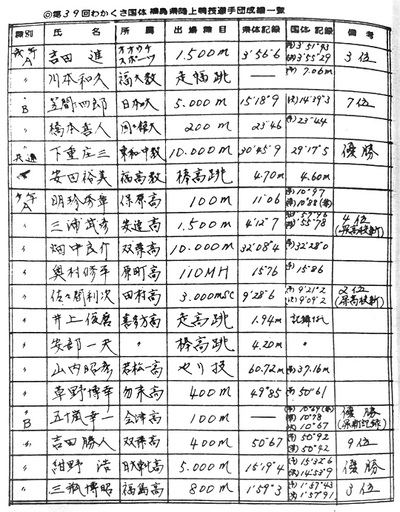 ◎第39回わかくさ国体 福島県陸上競技選手団成績一覧
種別 氏名 所属 出場種目 県体記録 国体記録 備考
成年A 吉田 進 スポーツ 1.500m 3'56"6 3'51"93 3'55"29 3位
〃 川本和久 福大教 走幅跳 — 7.06m
〃B 笠間四郎 5.000m 15'18"9 14'39"3 7位
〃 橋本喜人 200m 23"46 23"44
共通 下重庄三 10.000m 30'45"9 29'17"5 優勝
〃 安田裕美 福高教 棒高跳 4.70m 4.60m
少年A 100m 11"06 10"97 10"88
〃 三浦武彦 安達高 1.500m 4'12"7 3'57"96 3'55"78 4位
〃 畑中良介 双葉高 10.000m 32'08"4 32'28"0
〃 奥村修平 原町高 110MH 15"76 15"86
〃 佐々間利次 田村高 3.000msc 9'28"6 9'21"2 9'09"2 2位
〃 井上俊広 喜多方高 走高跳 1.94m 記録なし
〃 安部一夫 〃 棒高跳 4.20m 〃
〃 山内昭彦 若松一高 やり投 60.72m 37.16m
〃 草野博幸 勿来高 400m 49"85 50"61
〃B 五十嵐幸一 会津高 100m — 10"78 10"67 優勝
〃 吉田勝人 双葉高 400m 50"67 50"92 50"92 9位
〃 紺野 浩 5.000m 15'19"4 15'32"6 14'53"9 優勝
〃 三瓶博昭 福島高 800m 1'59"3 1'57"43 1'57"91 3位